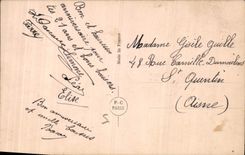 Bon et heureux
anniversaire pour
tes 21 ans et bons baisers
Léa
Elise
Bon anniversaire
et mille baisers
Made in France
P-C
PARIS
Madame Gisèle Quille
48 Rue Camille Desmoulins
St Quentin
(Aisne)